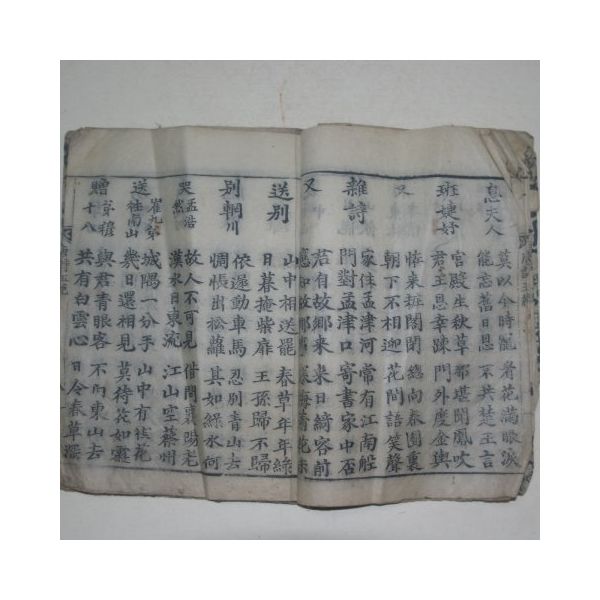 息夫人
莫以今時寵 看花滿眼淚
能忘舊日恩 不共楚王言
班婕妤
宮殿生秋草 那堪聞鳳吹
君王恩幸疎 門外度金輿
又
怪来粧閣閉 總向春園裏
朝下不相迎 花間語笑聲
雜詩
家住孟津河 常有江南船
門對孟津口 寄書家中否
又
君自故鄉来 来日綺窓前
應知故鄉事 寒梅着花未
送別
山中相送罷 春草年年綠
日暮掩柴扉 王孫歸不歸
別輞川
依遲動車馬 忍別青山去
惆悵出松蘿 其如綠水何
哭孟浩然
故人不可見 借問襄陽老
漢水日東流 江山空蔡州
送崔九弟往南山
城隅一分手 山中有桂花
幾日還相見 莫待花如霰
贈韋穆十八
與君青眼客 不向東山去
共有白雲心 日令春草深